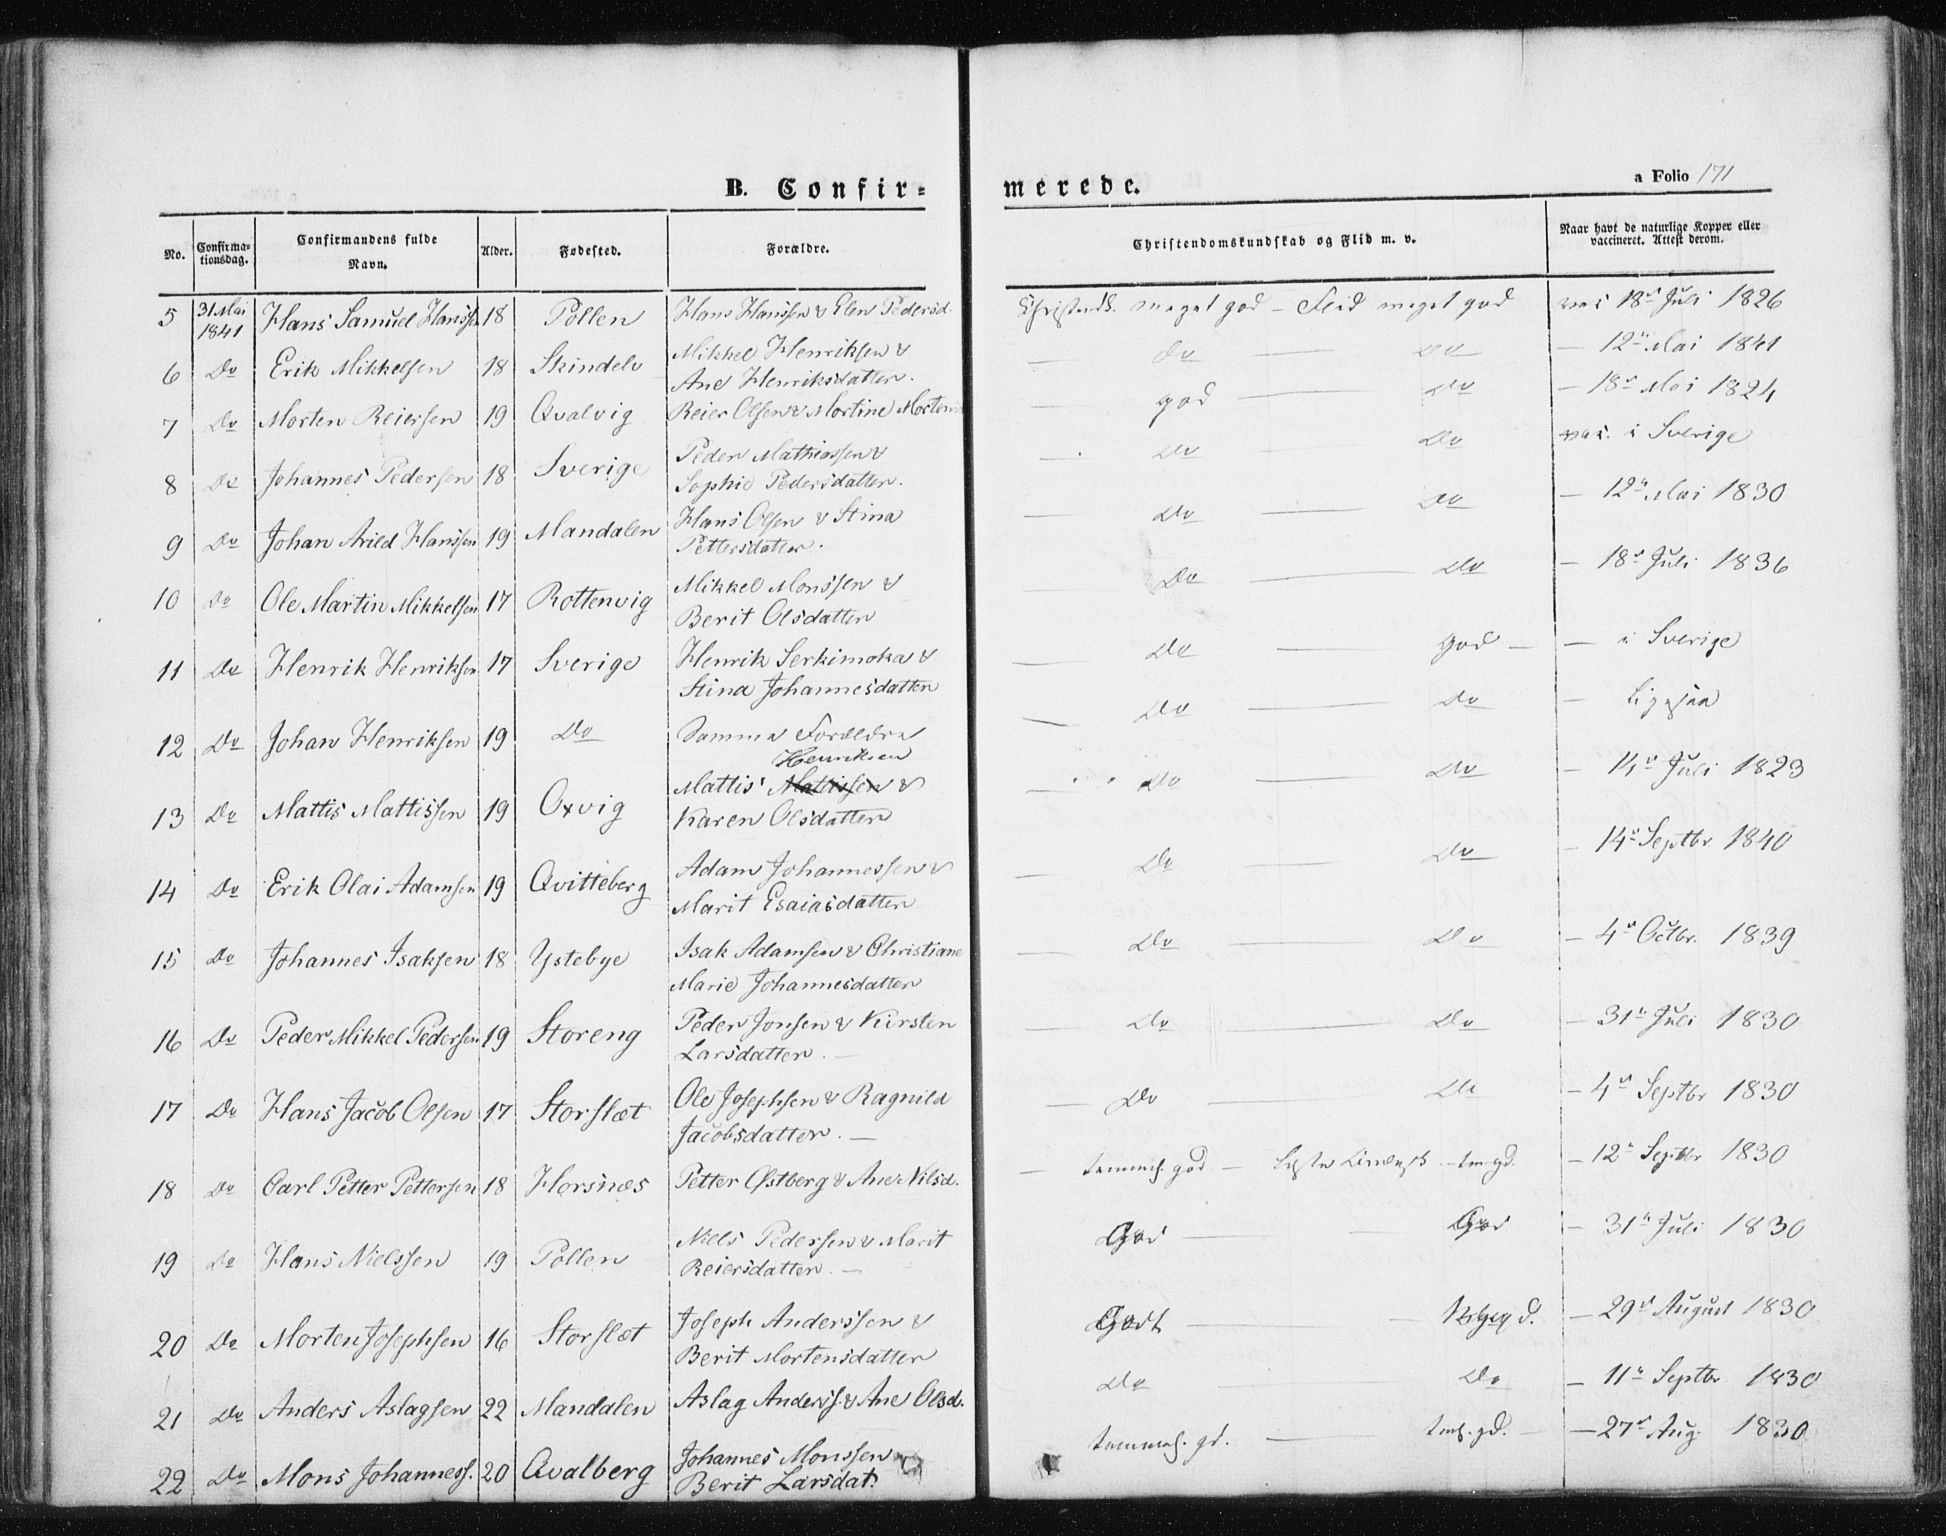 B. Confir-
merede.
a Folio 171
No. Confirma-tionsdag. Confirmandens fulde Navn. Alder. Fødested. Forældre. Christendomskundskab og Flid m. v. Naar havt de naturlige Kopper eller vaccineret. Attest derom.
5 31 Mai 1841 Hans Samuel Hanssen 18 Pollen Hans Hanssen & Elen Pedersd. Christendk. meget god – Flid meget god vac 18de Juli 1826
6 Do Erik Mikkelsen 18 Skindelv Mikkel Henriksen & Ane Henriksdatter. — do — do — 12te Mai 1841
7 Do Morten Reiersen 19 Qvalvig Reier Olsen & Mortine — god — do — 18de Mai 1824
8 Do Johannes Pedersen 18 Sverige Peder Mathiassen & Sophie Pedersdatter. — do — Do vac. i Sverige
9 Do Johan Arild Hanssen 19 Mandalen Hans Olsen & Stina Pettersdatter. — do — Do — 12te Mai 1830
10 Do Ole Martin Mikkelsen 17 Rottenvig Mikkel Monssen & Berit Olsdatter Do — do — 18de Juli 1836
11 Do Henrik Henriksen 17 Sverige Henrik Serkimoka & Stina Johannesdatter — Do — god — — i Sverige
12 Do Johan Henriksen 19 Do Samma Forældra — Do — do — ligesaa
13 Do Mattis Mattissen 19 Oxvig Mattis Mattissen Henriksen & Karen Olsdatter — Do — Do — 14de Juli 1823
14 Do Erik Olai Adamsen 19 Qvitteberg Adam Johannessen & Marit Esaiasdatter — Do — Do — 14de Septbr 1840
15 Do Johannes Isaksen 18 Ystebye Isak Adamsen & Christiane Marie Johannesdatter — Do — Do — 4de Octbr. 1839
16 Do Peder Mikkel Pedersen 19 Storeng Peder Jonsen & Kirsten Larsdatter. — Do — Do — 31te Juli 1830
17 Do Hans Jacob Olsen 17 Storslæt Ole Josephsen & Ragnild Jacobsdatter. — — Do — Do — 4de Septbr 1830
18 Do Carl Petter Pettersen 18 Horsnæs Petter Østberg & Ane Nilsd. — temmel. god — — 12te Septbr 1830
19 Do Hans Nielssen 19 Pollen Niels Pedersen & Marit Reiersdatter. — God — God — 31te Juli 1830
20 Do Morten Josephsen 16 Storslæt Joseph Anderssen & Berit Mortensdatter Godt — — 29de August 1830
21 Do Anders Aslagsen 22 Mandalen Aslag Anderss. & Ane Olsd. Do — Do — 11te Septbr 1830
22 Do Mons Johanness. 20 Qvalberg Johannes Monssen & Berit Larsdat. temmel. gd. — teml. gd. — 27de Aug. 1830